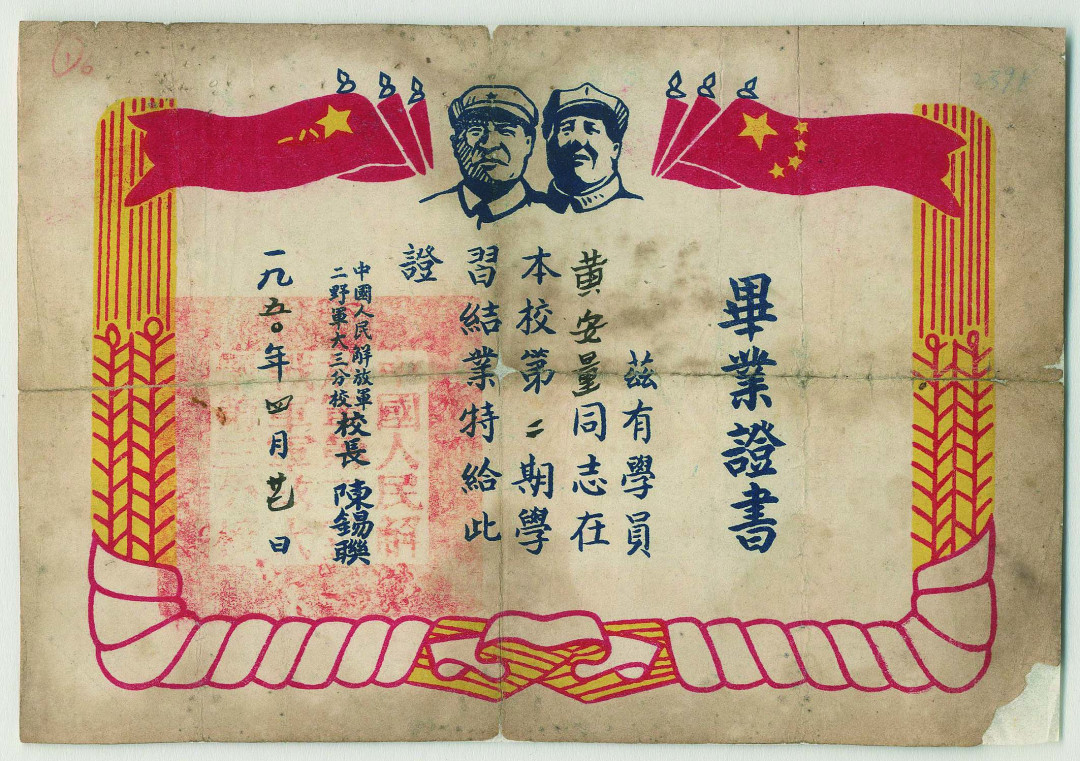 八一
畢業證書
茲有學員
黃安量同志在
本校第二期學
習結業特給此
證
中國人民解放軍
二野軍大三分校
校長 陳錫聯
一九五〇年四月 日